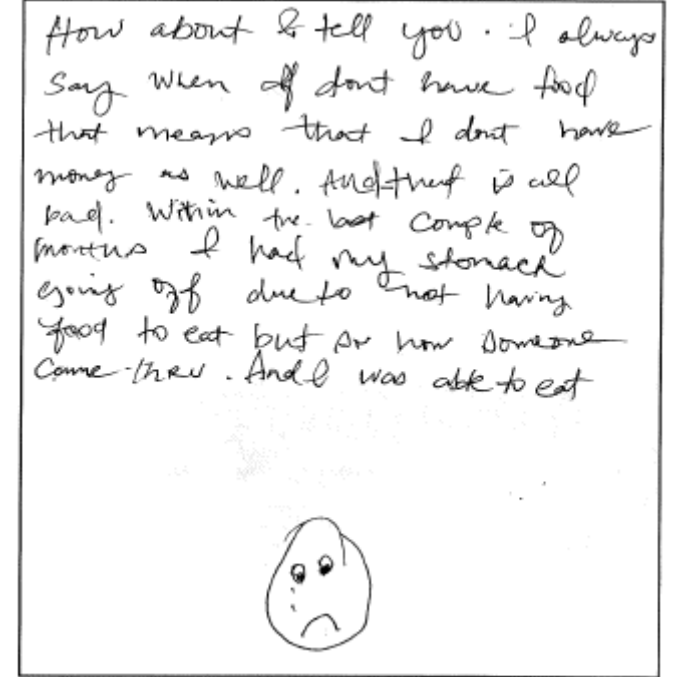 How about I tell you. I always
Say when I dont have food
that means that I dont have
money as well. And that is all
bad. Within the last couple of
months I had my stomach
going off due to not having
food to eat but some how someone
came thru. And I was able to eat